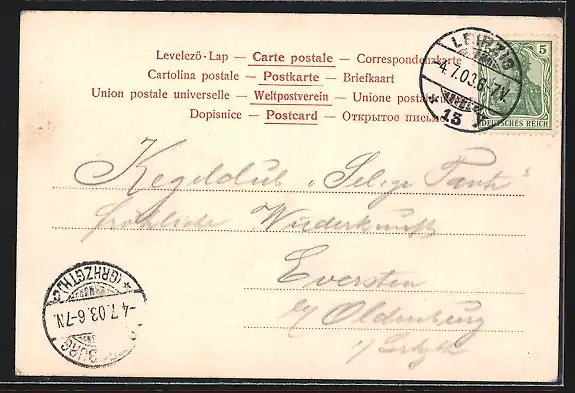 Levelező-Lap — Carte postale — Correspondenzkarte
Cartolina postale — Postkarte — Briefkaart
Union postale universelle — Weltpostverein — Unione postale
Dopisnice — Postcard — Открытое письмо
LEIPZIG
-4.7.03.6-7N.
* 13
5
DEUTSCHES REICH
Kegelclub „Selige Tante"
fröhliche Wiederkunft
Eversten
b/ Oldenburg
*(GRHZGTH.)
-4.7.03.6-7N.
BURG